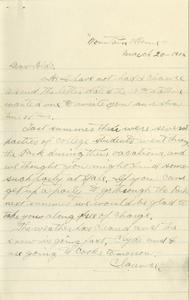 "Mountain Home"
March 20-1912
Dear Ned:
As I have not had a chance
to send the letter date the 17th
wanted me to write you on
business.
Last summer there were several
parties of college students went thru
the Park during their vacations and
we thought you might find some
such party at Yale. If you can
get up a party to go through the Park
next summer we would be glad to
take you along free of charge.
The weather has been and the
snow is going fast. Clyde and I
are going to Cooke tomorrow.
Clarence